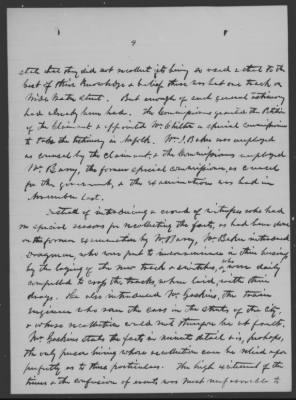 9
stated that they did not recollect its being so used & that to the
best of their knowledge & belief there was but one track on
Wide Water Street. But enough of such general testimony
had already been had. The Commissioners granted the Petition
of the Claimant & appointed Mr. Chilton a special Commissioner
to take the testimony in Norfolk. Wm. J. Baker was employed
as counsel by the claimant, & the Commissioners employed
Mr. Barry, the former special commissioner, as counsel
for the government, & the examination was had in
November last.
Instead of introducing a crowd of witnesses who had
no special reasons for recollecting the facts, as had been done
on the former examination by Mr. Barry, Mr. Baker introduced
Draymen, who was put to inconvenience in their business
by the laying of the new track & switches, & who were daily
compelled to cross the tracks when laid, with their
drays. He also introduced Mr. Gaskins, the train
engineer who ran the cars in the streets of the city,
& whose recollection could not therefore be at fault.
Mr. Gaskins states the facts in minute detail & is, perhaps,
the only person living whose recollection can be relied upon
perfectly as to these particulars. The high excitement of the
times & the confusion of events was most unfavorable to